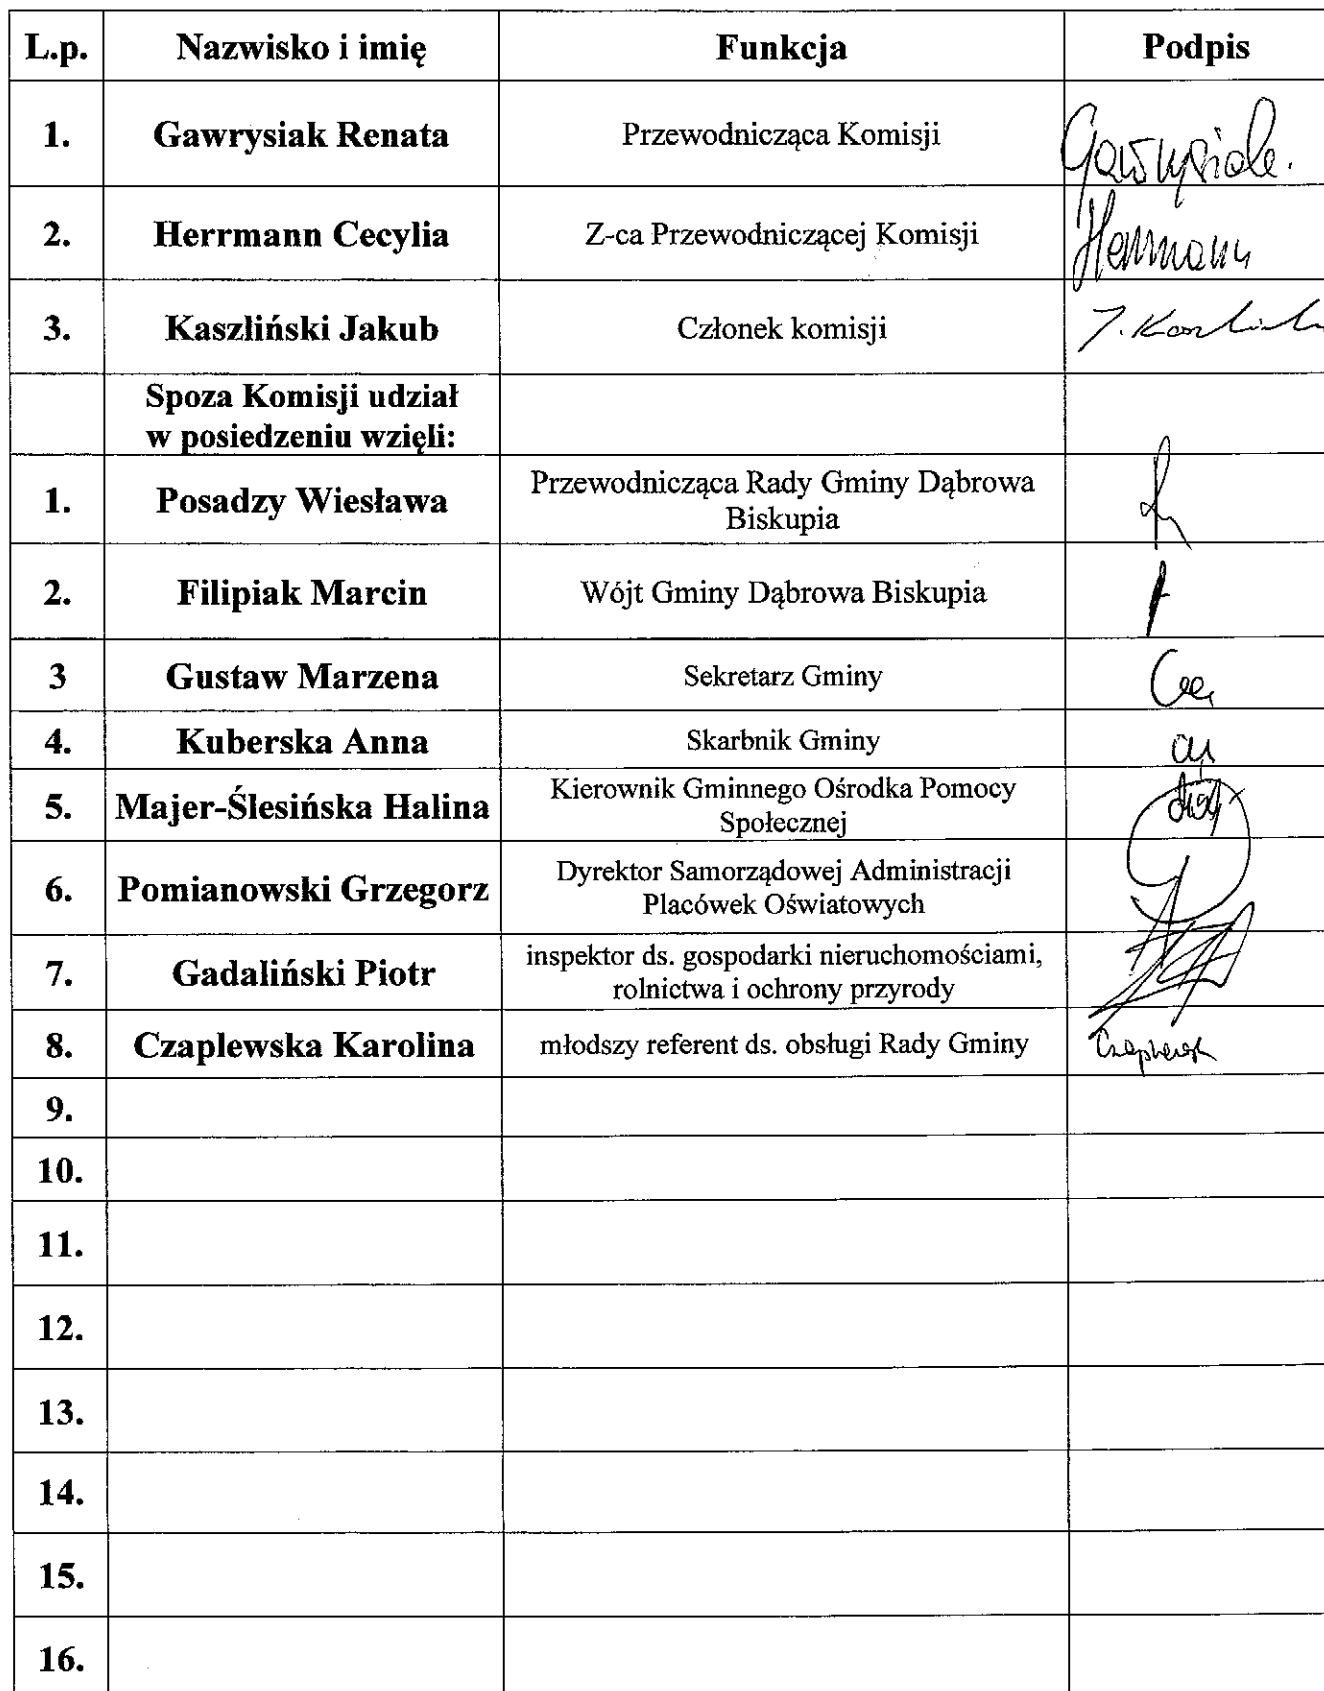 L.p. Nazwisko i imię Funkcja Podpis
1. Gawrysiak Renata Przewodnicząca Komisji Gawrysiak.
2. Herrmann Cecylia Z-ca Przewodniczącej Komisji Herrmann
3. Kaszliński Jakub Członek komisji J. Kaszliński
Spoza Komisji udział
w posiedzeniu wzięli:
1. Posadzy Wiesława Przewodnicząca Rady Gminy Dąbrowa
Biskupia
2. Filipiak Marcin Wójt Gminy Dąbrowa Biskupia
3 Gustaw Marzena Sekretarz Gminy
4. Kuberska Anna Skarbnik Gminy
5. Majer-Ślesińska Halina Kierownik Gminnego Ośrodka Pomocy
Społecznej
6. Pomianowski Grzegorz Dyrektor Samorządowej Administracji
Placówek Oświatowych
7. Gadaliński Piotr inspektor ds. gospodarki nieruchomościami,
rolnictwa i ochrony przyrody
8. Czaplewska Karolina młodszy referent ds. obsługi Rady Gminy
9.
10.
11.
12.
13.
14.
15.
16.